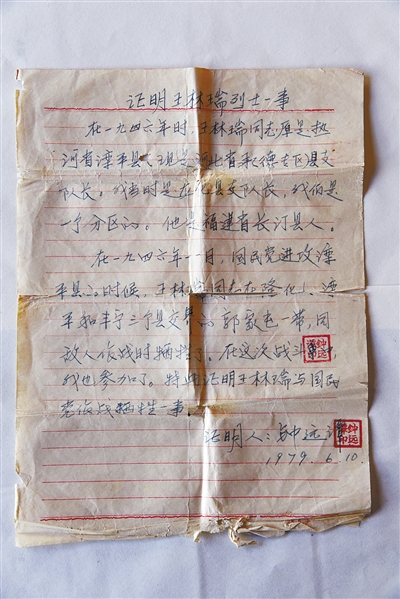 证明王林瑞烈士一事
在一九四六年时,王林瑞同志原是热
河省滦平县(现是河北省承德专区)县支
队长。我当时是在 化县支队长,我俩是
一个分区的。他是福建省长汀县人。
在一九四六年一月,国民党进攻滦
平县的时候,王林瑞同志在隆化、滦
平和丰宁三个县交界的郭家屯一带,同
敌人作战时牺牲了。在这次战斗
我也参加了。特此证明王林瑞与国民
党作战牺牲一事。
证明人:钟远
1979.6.10.